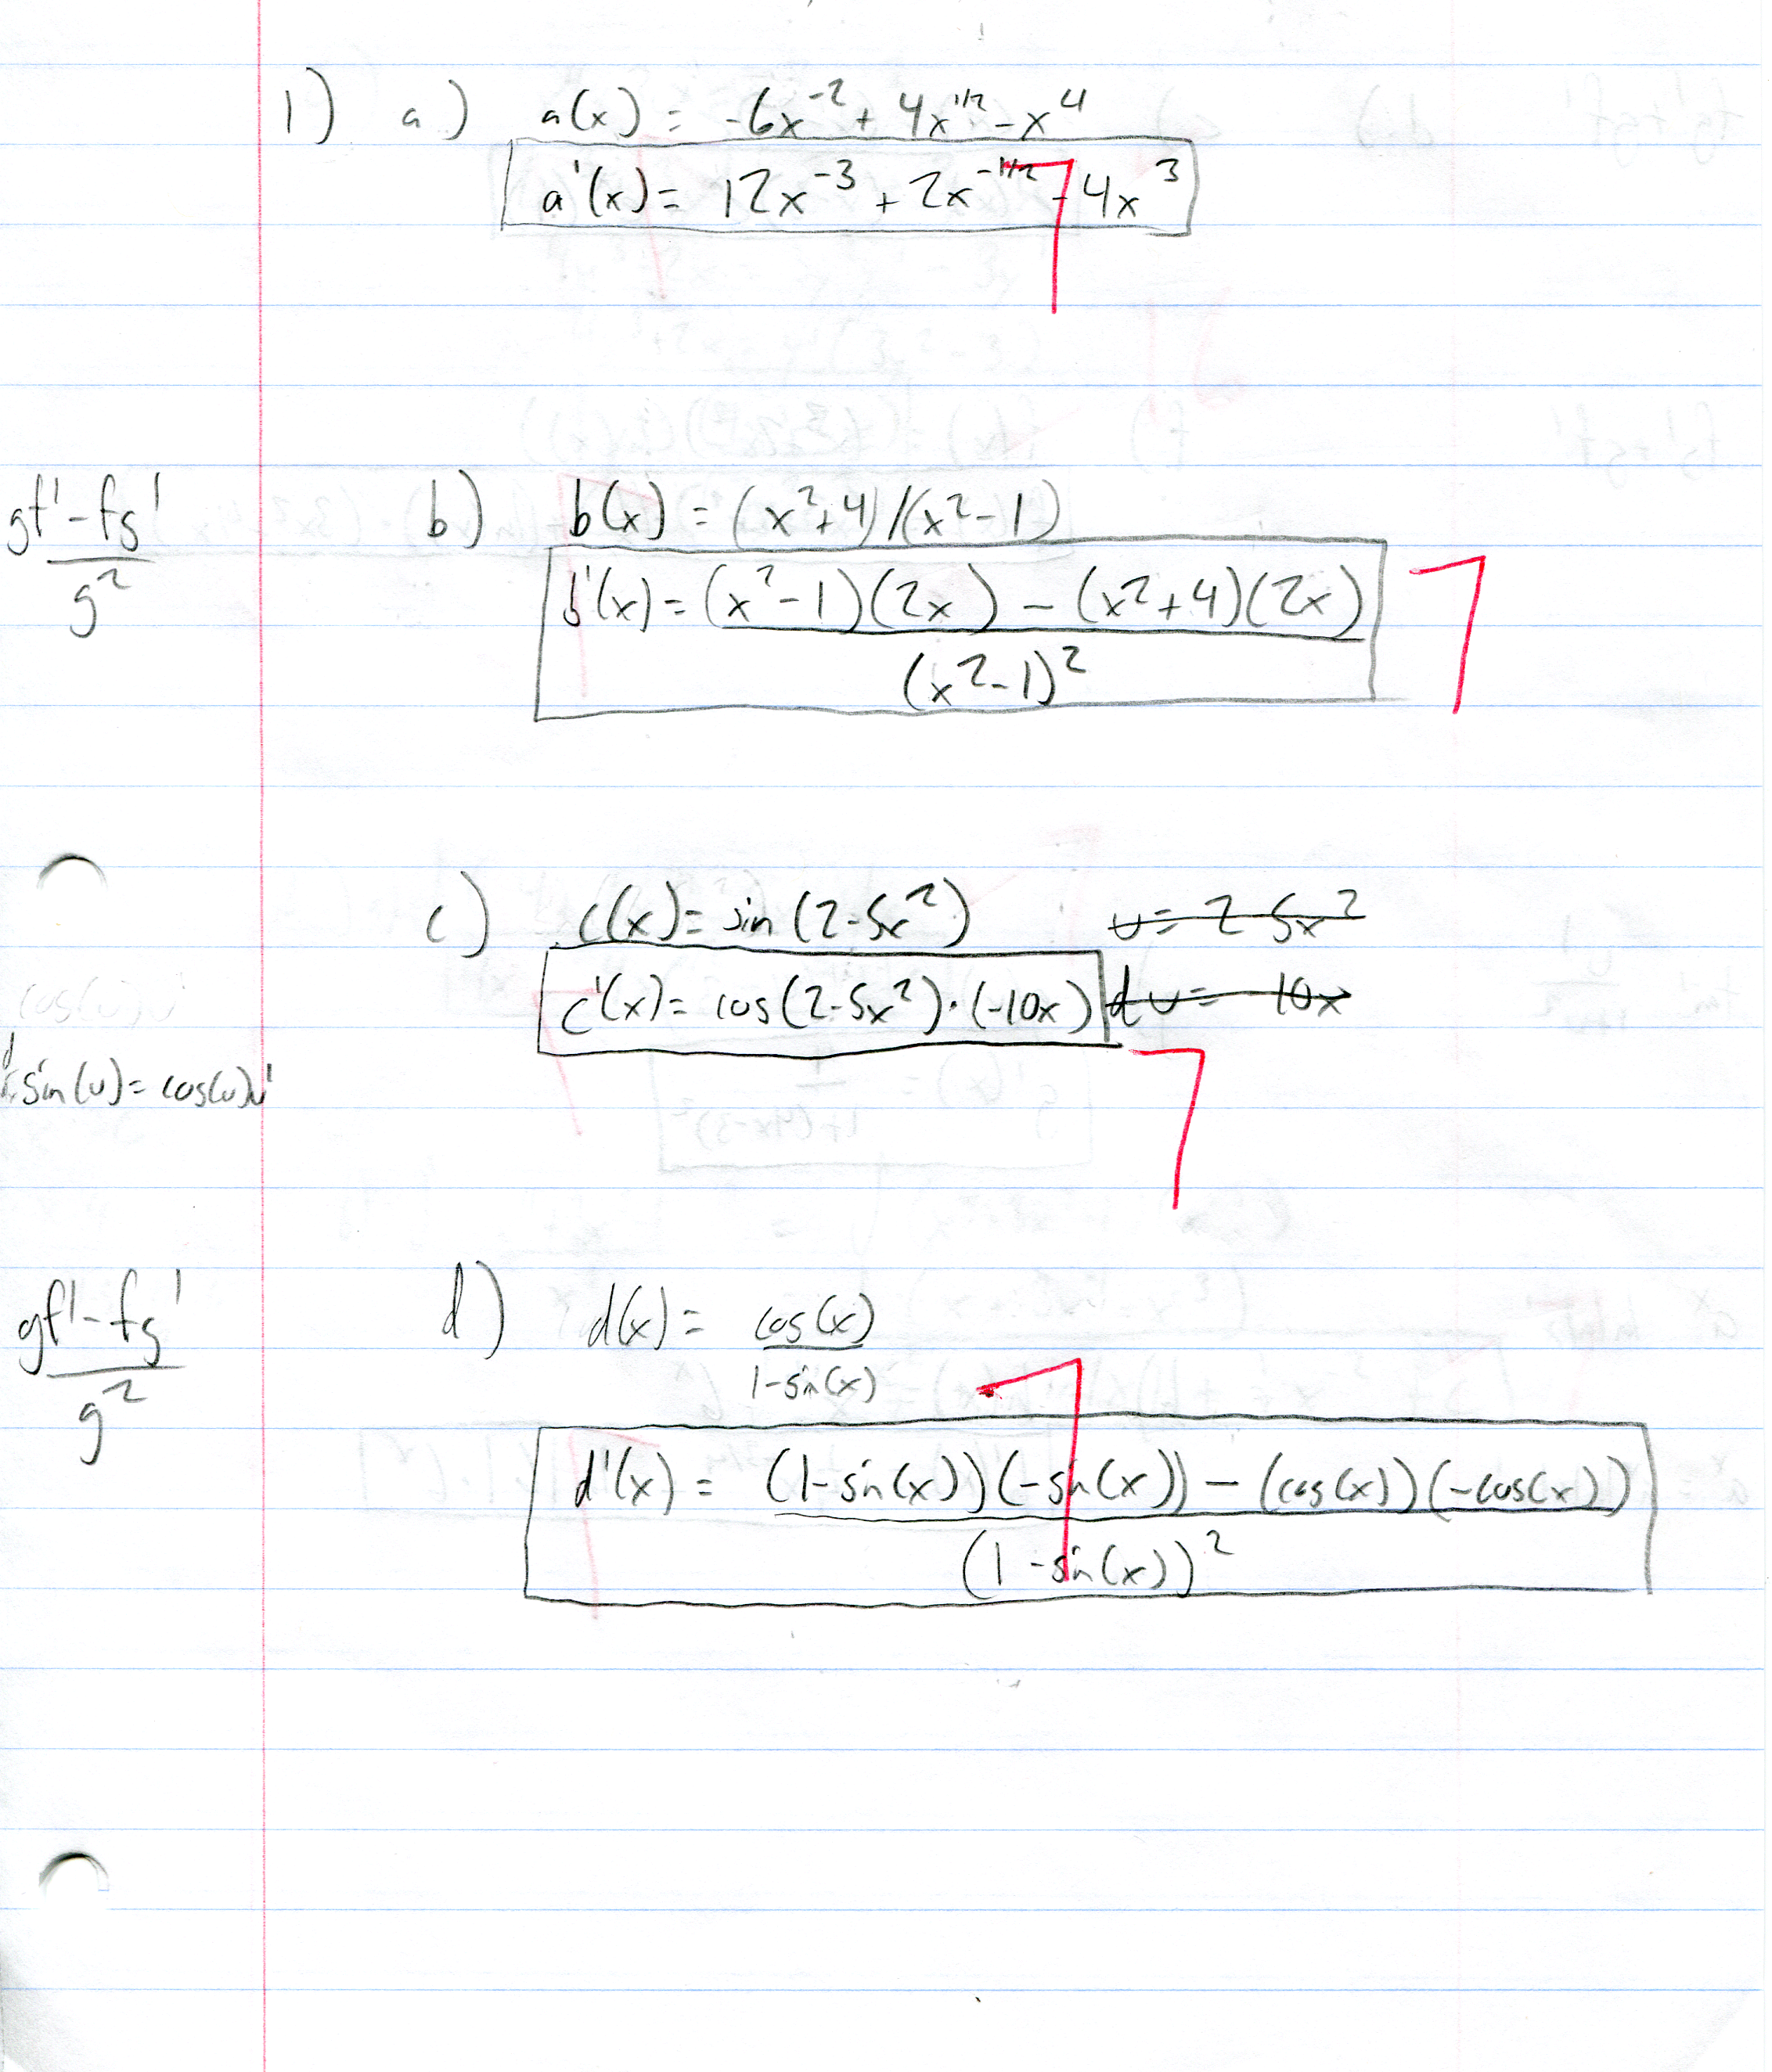 1) a) a(x) = -6x^-2 + 4x^1/2 - x^4
a'(x) = 12x^-3 + 2x^-1/2 - 4x^3
gf' - fg'
g^2
b) b(x) = (x^2+4)/(x^2-1)
b'(x) = (x^2-1)(2x) - (x^2+4)(2x)
(x^2-1)^2
c) c(x) = sin(2-5x^2) u = 2 5x^2
c'(x) = cos(2-5x^2)·(-10x) du = -10x
cos(u)u'
sin(u) = cos(u)u'
gf' - fg'
g^2
d) d(x) = cos(x)
1-sin(x)
d'(x) = (1-sin(x))(-sin(x)) - (cos(x))(-cos(x))
(1-sin(x))^2